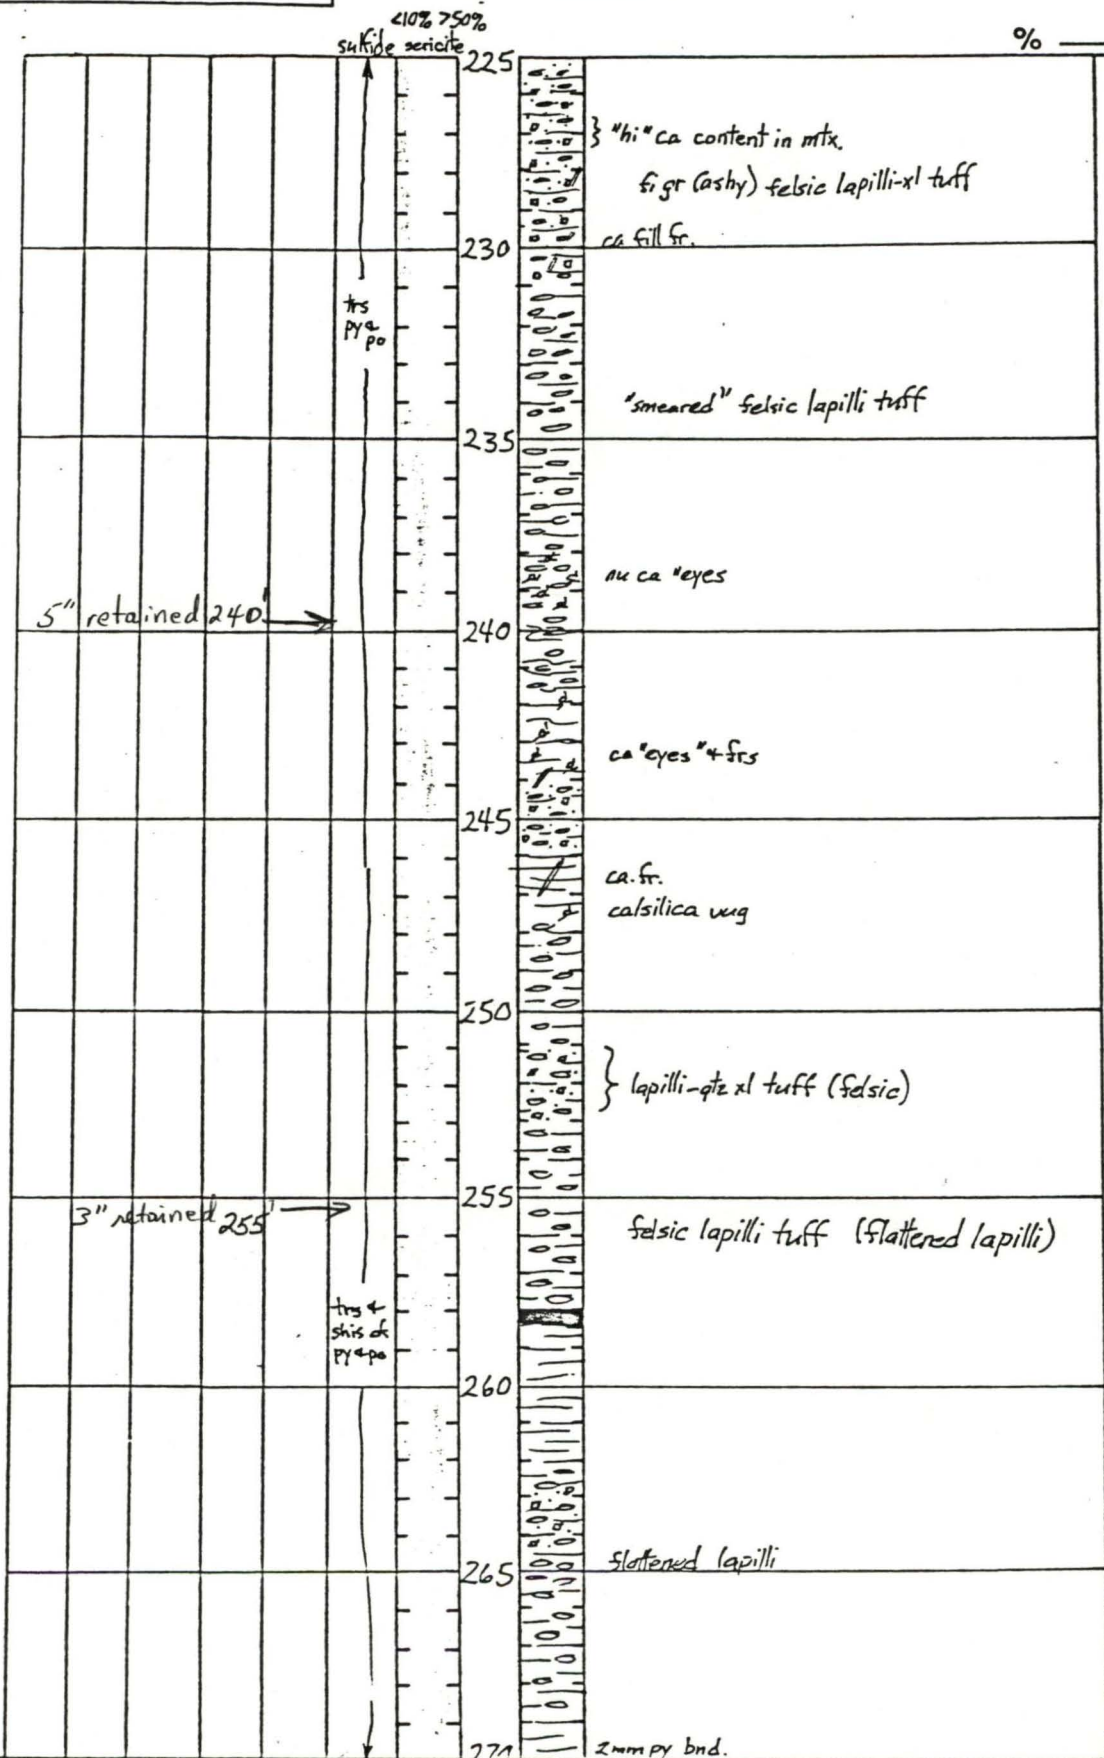 <10% >50%
sulfide sericite
% —
225
} "hi" ca content in mtx.
fi gr (ashy) felsic lapilli-xl tuff
ca fill fr.
230
trs
py &
po
"smeared" felsic lapilli tuff
235
nu ca "eyes
5" retained 240'
240
ca "eyes" & frs
245
ca. fr.
calsilica vug
250
} lapilli-qtz xl tuff (felsic)
255
3" retained 255'
felsic lapilli tuff (flattened lapilli)
trs &
shis of
py & po
260
flattened lapilli
265
270
2mm py bnd.